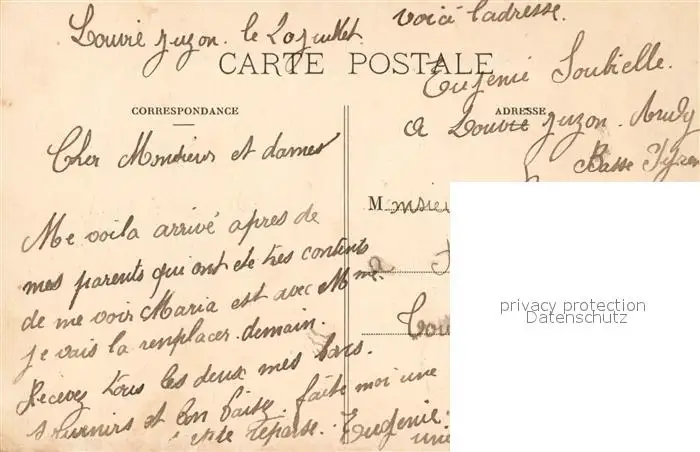 Louvie Juzon. le 20 juillet. voici l'adresse.
CARTE POSTALE
Eugenie Soubielle.
CORRESPONDANCE
ADRESSE
a Louvie Juzon. Arudy
Basse Pyren
Cher Monsieur et dames
Monsieu
Me voila arrivé apres de
mes parents qui ont ete tres contents
de me voir Maria est avec Mme
je vais la remplacer demain.
Recevez tous les deux mes bons.
souvenirs et bon baisez. faite moi une
reponse. Eugenie.
une
Tou
privacy protection
Datenschutz